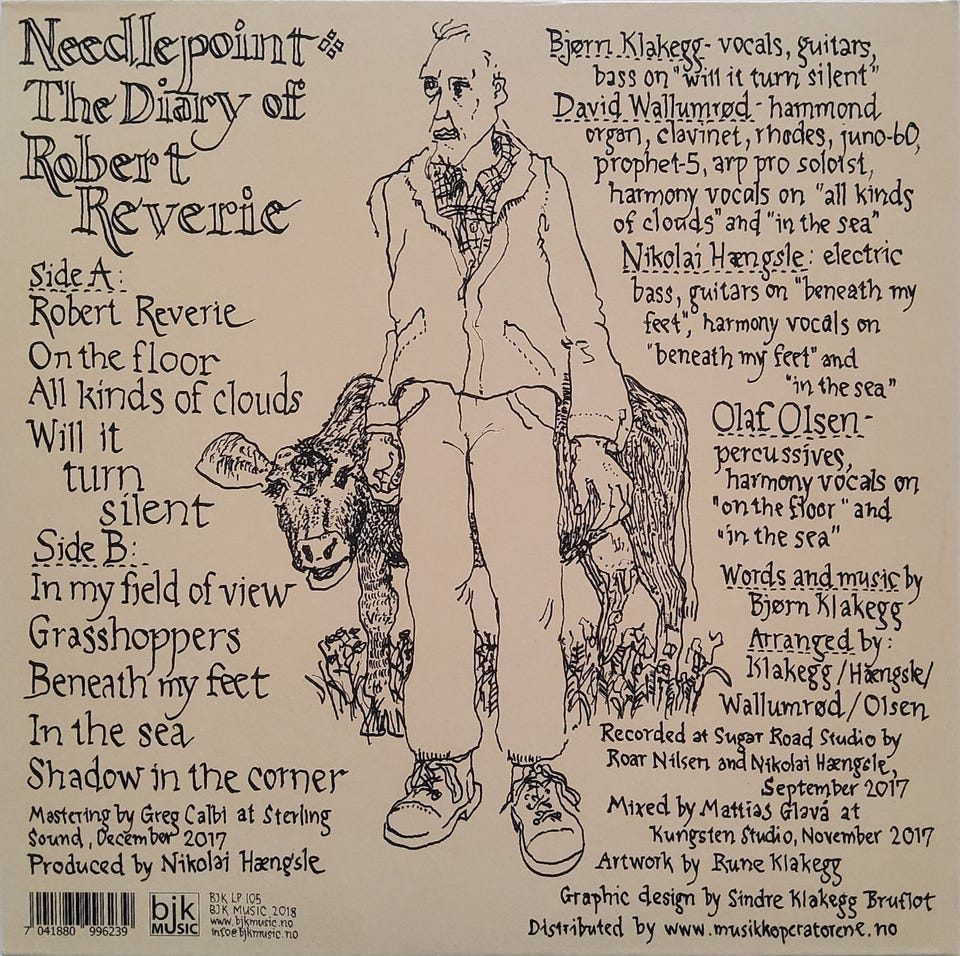 Needlepoint
The Diary of
Robert
Reverie
Side A:
Robert Reverie
On the floor
All kinds of clouds
Will it
turn
silent
Side B:
In my field of view
Grasshoppers
Beneath my feet
In the sea
Shadow in the corner
Mastering by Greg Calbi at Sterling
Sound, December 2017
Produced by Nikolai Hængsle
7 041880 996239
bjk
MUSIC
BJK LP 105
BJK MUSIC 2018
www.bjkmusic.no
info@bjkmusic.no
Bjørn Klakegg- vocals, guitars,
bass on "will it turn silent"
David Wallumrød - hammond
organ, clavinet, rhodes, juno-60,
prophet-5, arp pro soloist,
harmony vocals on "all kinds
of clouds" and "in the sea"
Nikolai Hængsle: electric
bass, guitars on "beneath my
feet", harmony vocals on
"beneath my feet" and
"in the sea"
Olaf Olsen-
percussives,
harmony vocals on
"on the floor" and
"in the sea"
Words and music by
Bjørn Klakegg
Arranged by:
Klakegg/Hængsle/
Wallumrød/Olsen
Recorded at Sugar Road Studio by
Roar Nilsen and Nikolai Hængsle,
September 2017
Mixed by Mattias Glavá at
Kungsten Studio, November 2017
Artwork by Rune Klakegg
Graphic design by Sindre Klakegg Bruflot
Distributed by www.musikkoperatorene.no